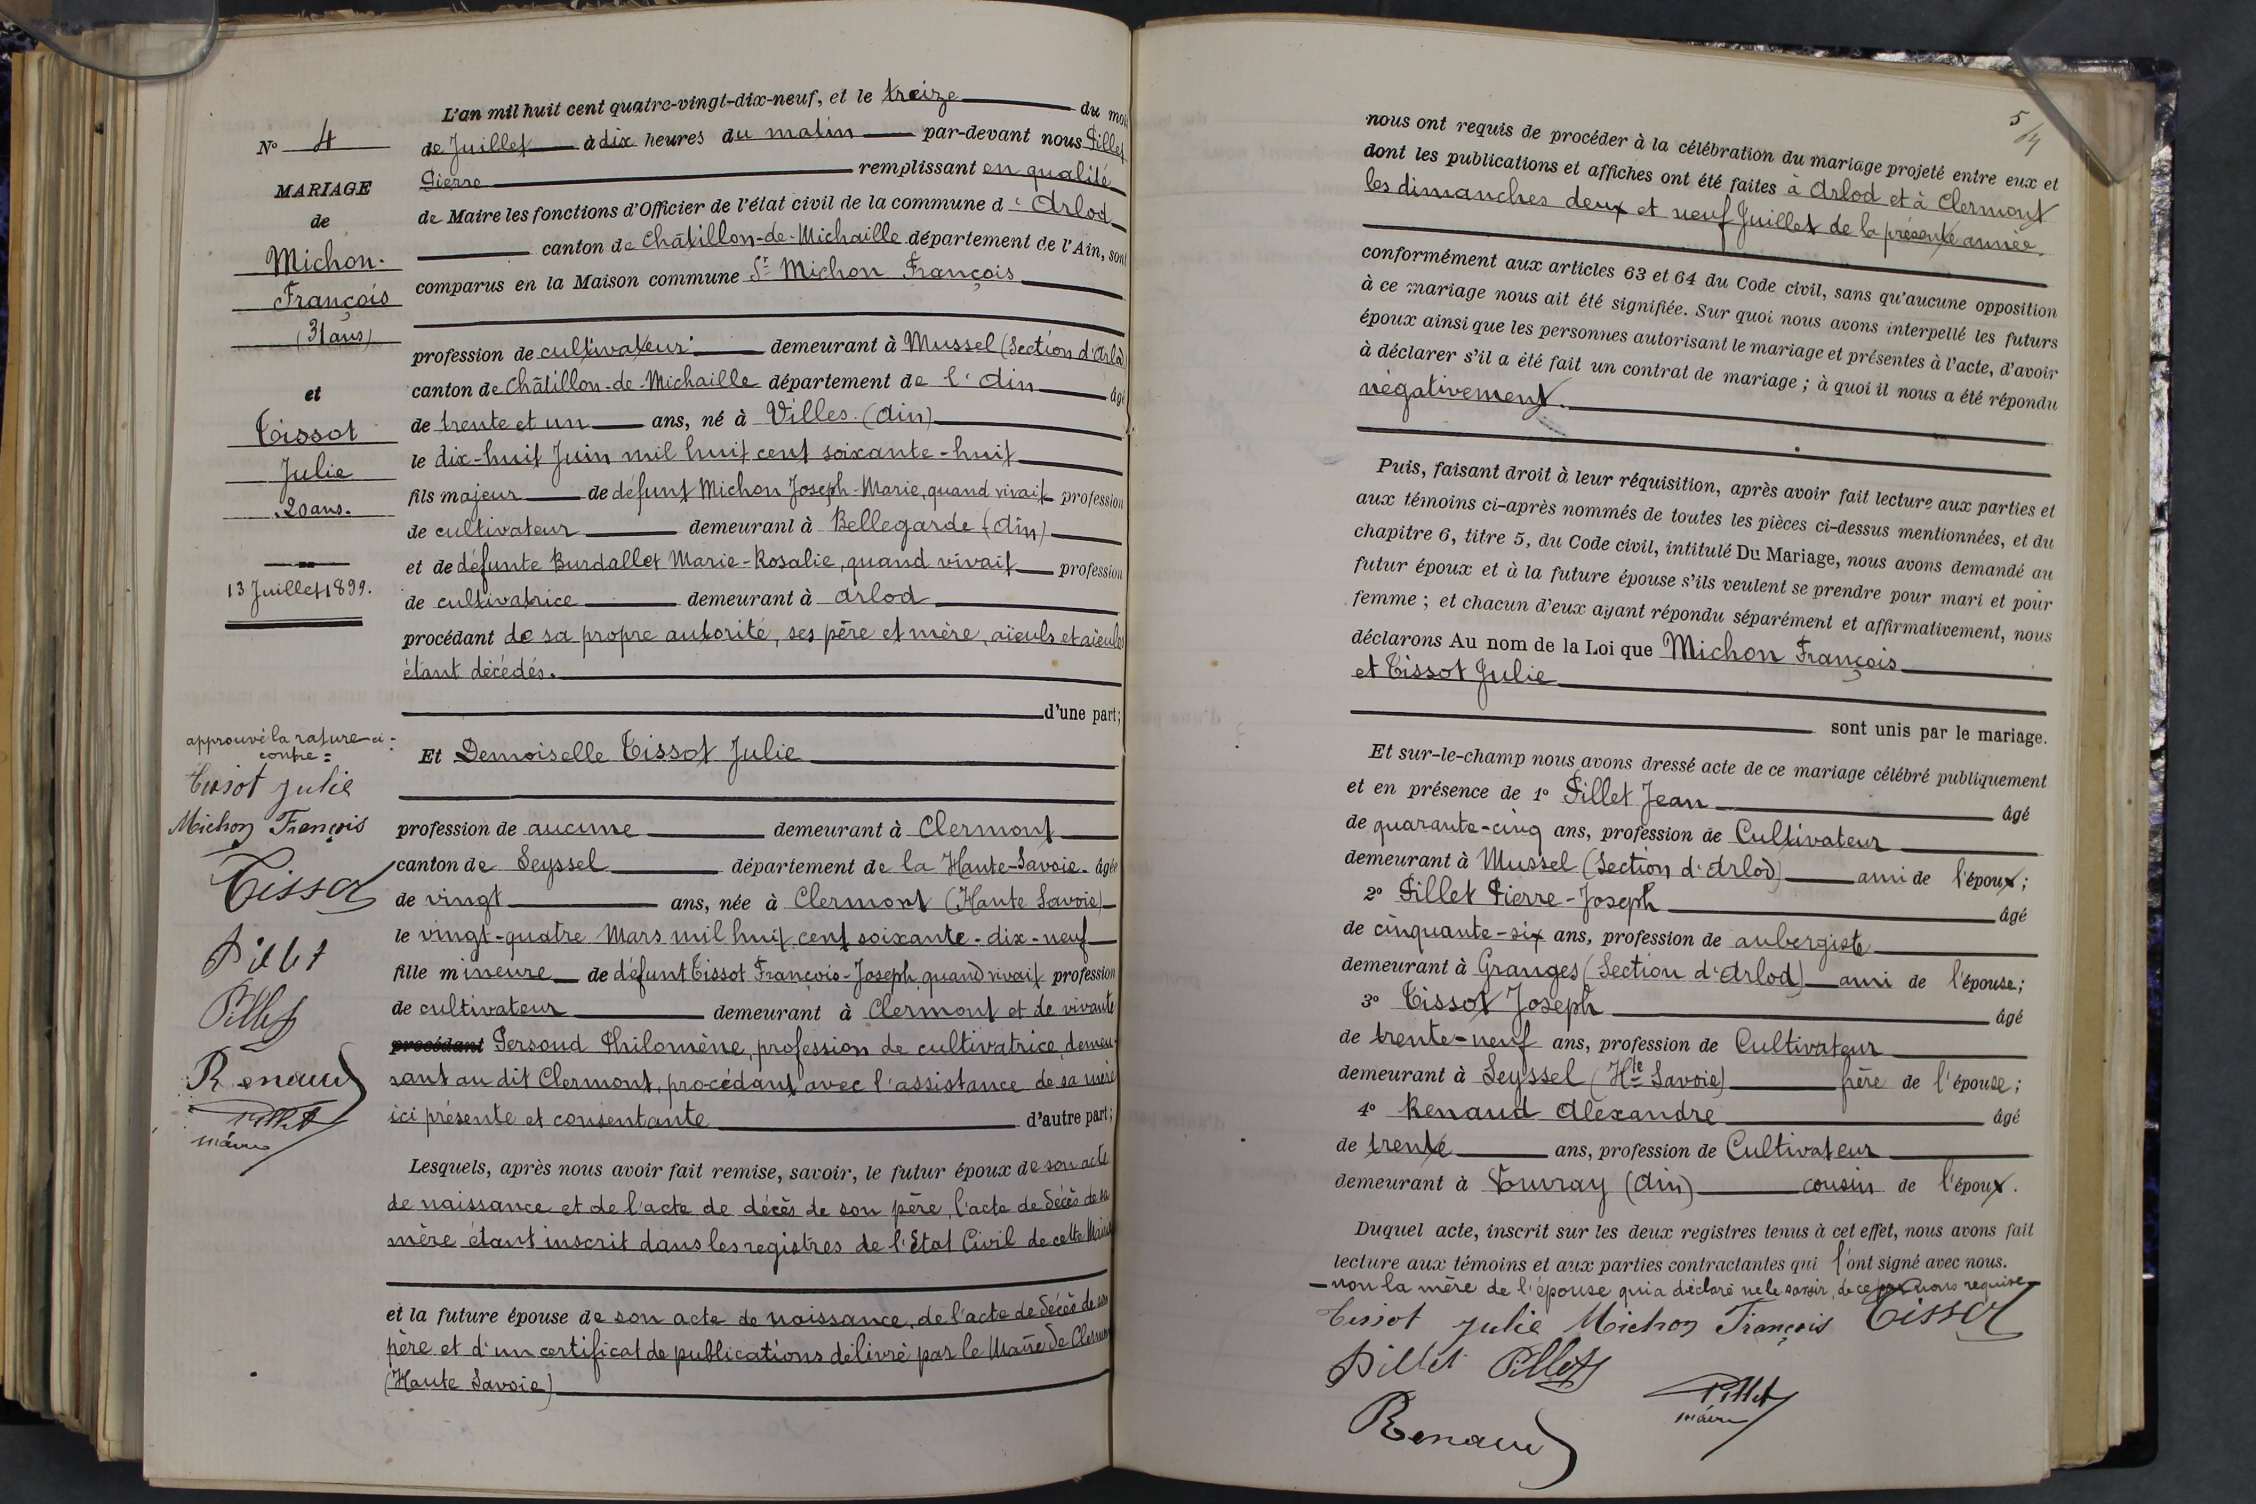 N° 4
MARIAGE
de
Michon
François
(31 ans)
et
Tissot
Julie
20 ans.
13 Juillet 1899.
approuvé la rature ci-
contre =
Tissot Julie
Michon François
Tissot
Pillet
Pillet
Renaud
Pillet
maire
L'an mil huit cent quatre-vingt-dix-neuf, et le treize du mois
de Juillet à dix heures du matin par-devant nous Pillet
Pierre remplissant en qualité
de Maire les fonctions d'Officier de l'état civil de la commune d'Arlod
canton de Châtillon-de-Michaille département de l'Ain, sont
comparus en la Maison commune Sr Michon François
profession de cultivateur demeurant à Mussel (Section d'Arlod)
canton de Châtillon-de-Michaille département de l'Ain âgé
de trente et un ans, né à Villes (Ain)
le dix-huit Juin mil huit cent soixante-huit
fils majeur de défunt Michon Joseph-Marie, quand vivait profession
de cultivateur demeurant à Bellegarde (Ain)
et de défunte Burdallet Marie-Rosalie, quand vivait profession
de cultivatrice demeurant à Arlod
procédant de sa propre autorité, ses père et mère, aïeuls et aïeules
étant décédés.
d'une part;
Et Demoiselle Tissot Julie
profession de aucune demeurant à Clermont
canton de Seyssel département de la Haute-Savoie. âgée
de vingt ans, née à Clermont (Haute Savoie)
le vingt-quatre Mars mil huit cent soixante-dix-neuf
fille mineure de défunt Tissot François-Joseph, quand vivait profession
de cultivateur demeurant à Clermont et de vivante
procédant Persoud Philomène, profession de cultivatrice, demeu-
rant au dit Clermont, procédant avec l'assistance de sa mère
ici présente et consentante d'autre part;
Lesquels, après nous avoir fait remise, savoir, le futur époux de son acte
de naissance et de l'acte de décès de son père, l'acte de décès de sa
mère étant inscrit dans les registres de l'Etat Civil de cette Mairie
et la future épouse de son acte de naissance, de l'acte de décès de son
père et d'un certificat de publications délivré par le Maire de Clermont
(Haute Savoie)
5
nous ont requis de procéder à la célébration du mariage projeté entre eux et
dont les publications et affiches ont été faites à Arlod et à Clermont
les dimanches deux et neuf Juillet de la présente année.
conformément aux articles 63 et 64 du Code civil, sans qu'aucune opposition
à ce mariage nous ait été signifiée. Sur quoi nous avons interpellé les futurs
époux ainsi que les personnes autorisant le mariage et présentes à l'acte, d'avoir
à déclarer s'il a été fait un contrat de mariage; à quoi il nous a été répondu
négativement.
Puis, faisant droit à leur réquisition, après avoir fait lecture aux parties et
aux témoins ci-après nommés de toutes les pièces ci-dessus mentionnées, et du
chapitre 6, titre 5, du Code civil, intitulé Du Mariage, nous avons demandé au
futur époux et à la future épouse s'ils veulent se prendre pour mari et pour
femme; et chacun d'eux ayant répondu séparément et affirmativement, nous
déclarons Au nom de la Loi que Michon François
et Tissot Julie
sont unis par le mariage.
Et sur-le-champ nous avons dressé acte de ce mariage célébré publiquement
et en présence de 1° Pillet Jean âgé
de quarante-cinq ans, profession de Cultivateur
demeurant à Mussel (Section d'Arlod) ami de l'époux;
2° Pillet Pierre-Joseph âgé
de cinquante-six ans, profession de aubergiste
demeurant à Granges (Section d'Arlod) ami de l'épouse;
3° Tissot Joseph âgé
de trente-neuf ans, profession de Cultivateur
demeurant à Seyssel (Hte Savoie) frère de l'épouse;
4° Renaud Alexandre âgé
de trente ans, profession de Cultivateur
demeurant à Vouvray (Ain) cousin de l'époux.
Duquel acte, inscrit sur les deux registres tenus à cet effet, nous avons fait
lecture aux témoins et aux parties contractantes qui l'ont signé avec nous.
non la mère de l'épouse qui a déclaré ne le savoir, de ce par nous requise
Tissot Julie Michon François Tissot
Pillet Pillet
Pillet
maire
Renaud